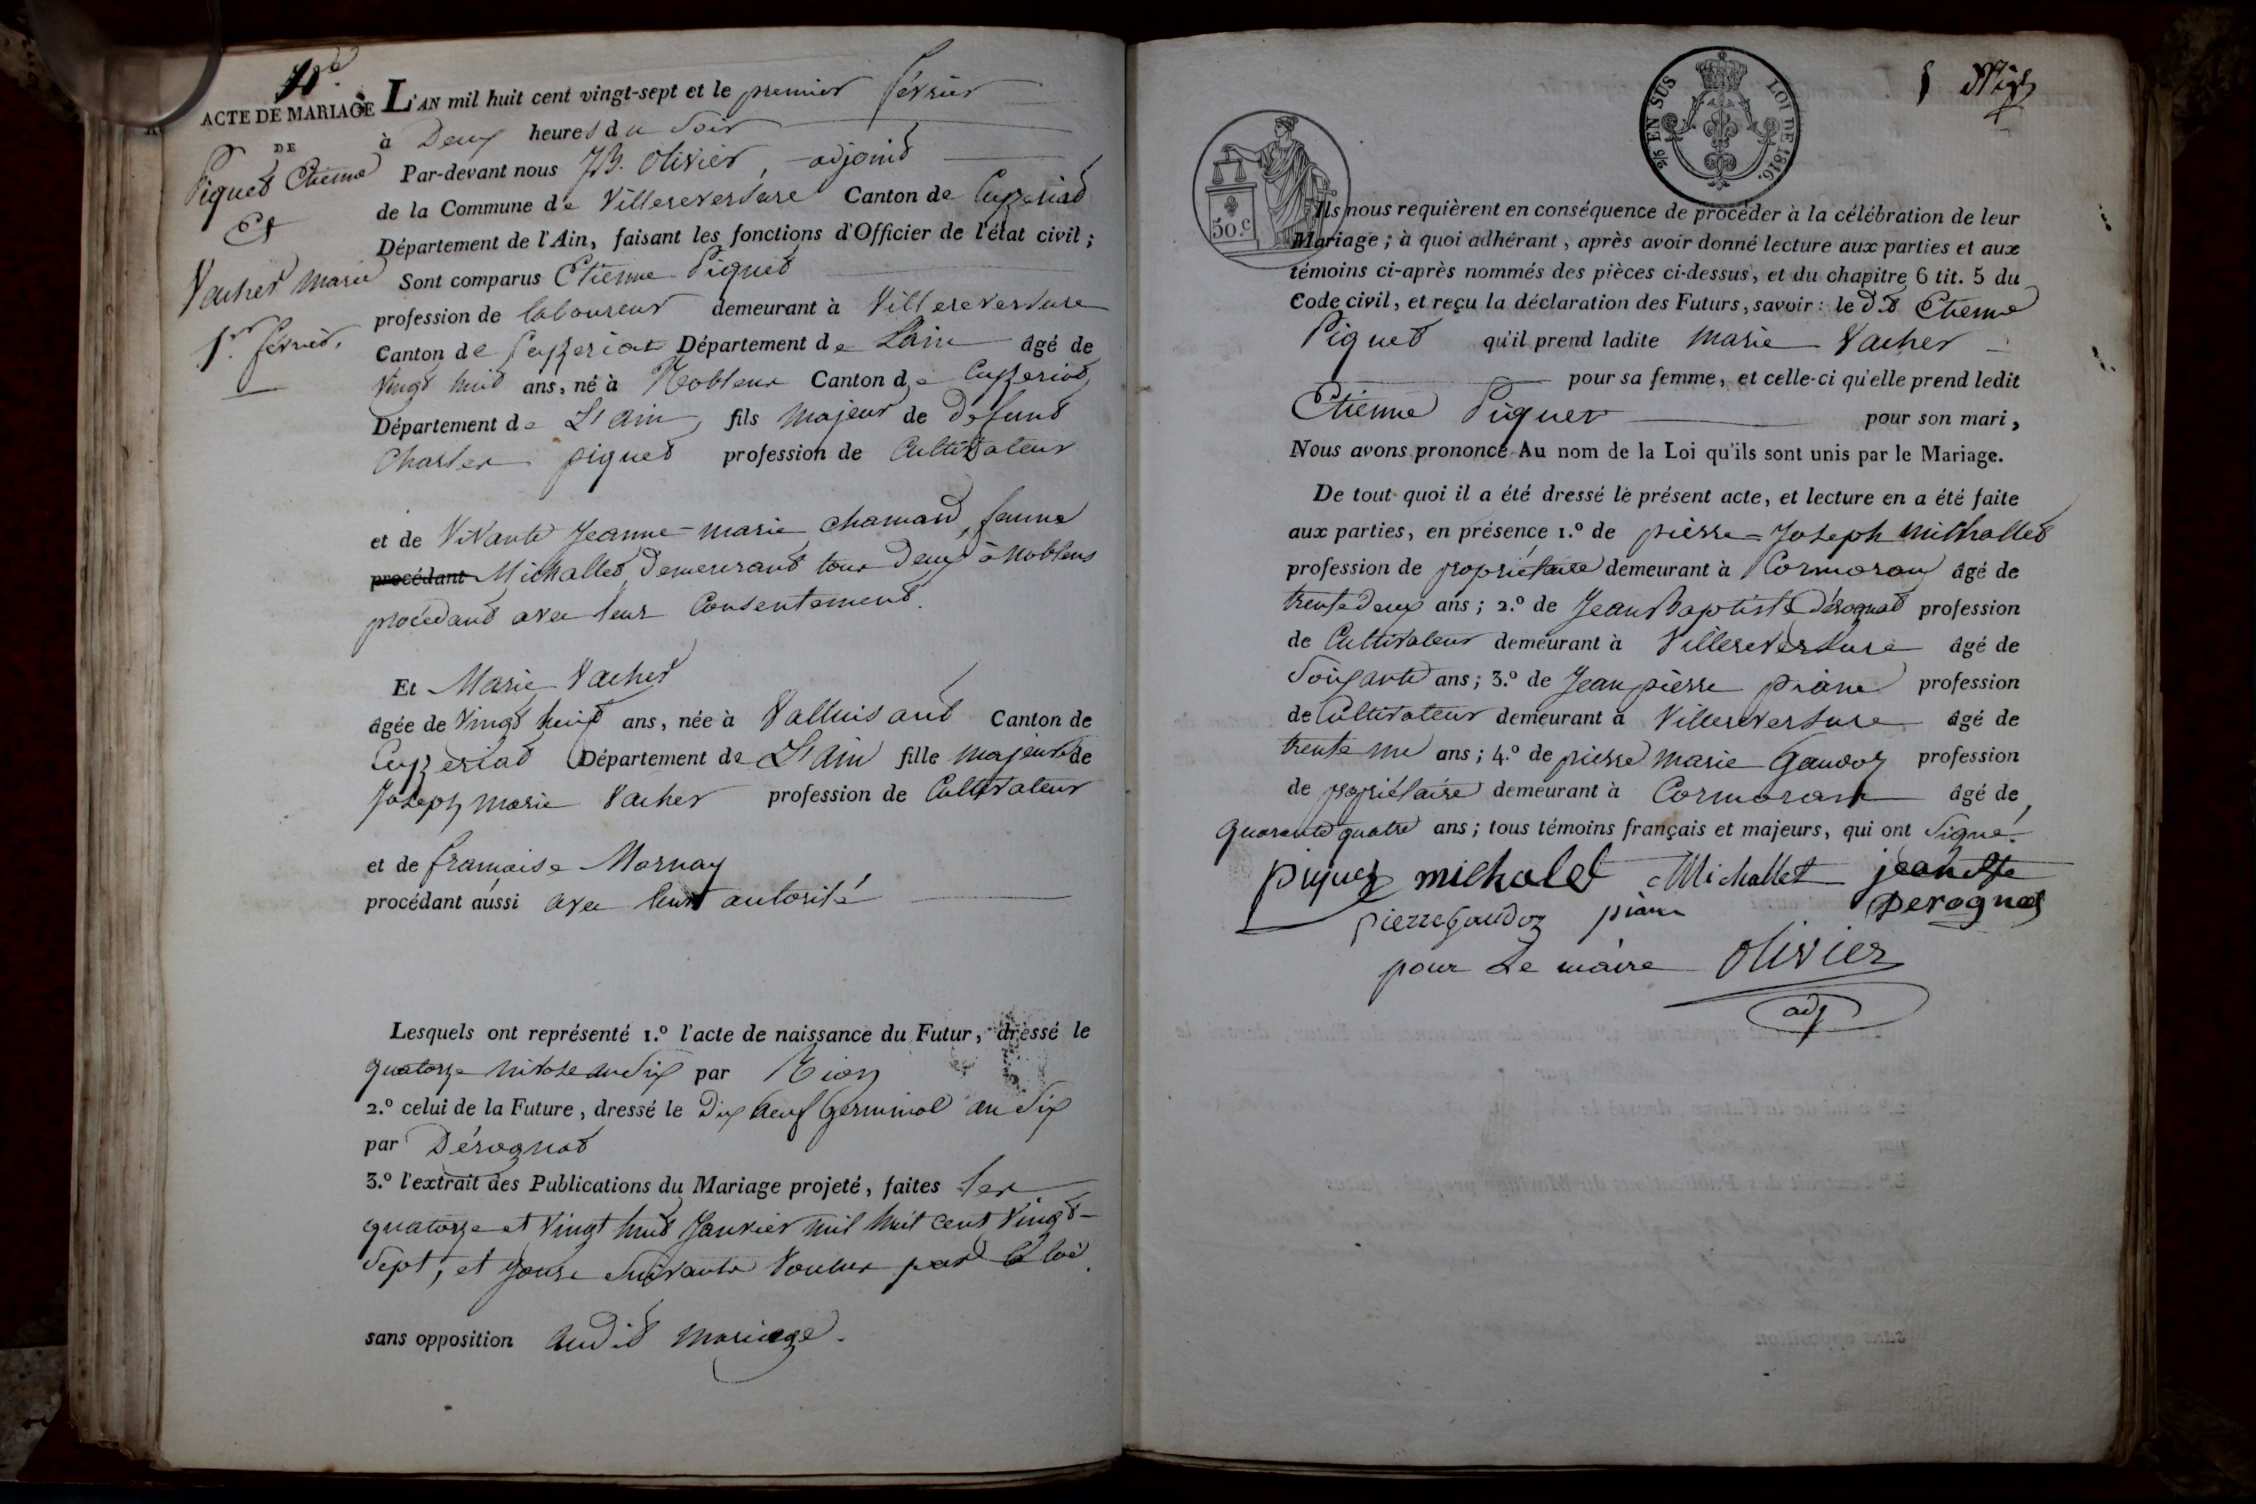 4e
ACTE DE MARIAGE
DE
Piquet Etienne
Et
Vacher marie
1er février.
L'AN mil huit cent vingt-sept et le premier février
à Deux heures du Soir
Par-devant nous JB. Olivier, adjoint
de la Commune de Villereversure Canton de Ceyzeriat
Département de l'Ain, faisant les fonctions d'Officier de l'état civil ;
Sont comparus Etienne Piquet
profession de laboureur demeurant à Villereversure
Canton de Ceyzeriat Département de L'ain âgé de
vingt huit ans, né à Noblens Canton de Ceyzeriat,
Département de L'ain, fils majeur de defunt
Charles piquet profession de Cultivateur
et de Vivante Jeanne-marie chamand, femme
procédant Michallet, Demeurant tous Deux à Noblens
procédant avec leur Consentement.
Et Marie Vacher
âgée de Vingt huit ans, née à Valluisant Canton de
Ceyzeriat Département de L'ain fille majeure de
Joseph marie Vacher profession de Cultivateur
et de françoise Mornay
procédant aussi avec leur autorité
Lesquels ont représenté 1.º l'acte de naissance du Futur, dressé le
quatorze nivose an Six par
2.º celui de la Future, dressé le Dix neuf Germinal an Six
par Dérognat
3.º l'extrait des Publications du Mariage projeté, faites les
quatorze et Vingt huit Janvier mil huit cent Vingt-
Sept, et jours Suivants Voulus par la loi.
sans opposition audit mariage.
2/5 EN SUS LOI DE 1816.
50.c
Ils nous requièrent en conséquence de procéder à la célébration de leur
Mariage ; à quoi adhérant, après avoir donné lecture aux parties et aux
témoins ci-après nommés des pièces ci-dessus, et du chapitre 6 tit. 5 du
Code civil, et reçu la déclaration des Futurs, savoir : le dt Etienne
Piquet qu'il prend ladite marie Vacher
pour sa femme, et celle-ci qu'elle prend ledit
Etienne Piquet pour son mari,
Nous avons prononcé Au nom de la Loi qu'ils sont unis par le Mariage.
De tout quoi il a été dressé le présent acte, et lecture en a été faite
aux parties, en présence 1.º de pierre-Joseph michallet
profession de propriétaire demeurant à Cormoran âgé de
trente Deux ans ; 2.º de Jean Baptiste Dérognat profession
de Cultivateur demeurant à Villereversure âgé de
Soixante ans ; 3.º de Jean pierre piane profession
de Cultivateur demeurant à Villereversure âgé de
trente un ans ; 4.º de pierre marie Gaudoz profession
de propriétaire demeurant à Cormoran âgé de
quarante quatre ans ; tous témoins français et majeurs, qui ont Signé.
piquet michalet Michallet jean bte
pierre gaudoz piane Derognat
pour Le maire Olivier
adj